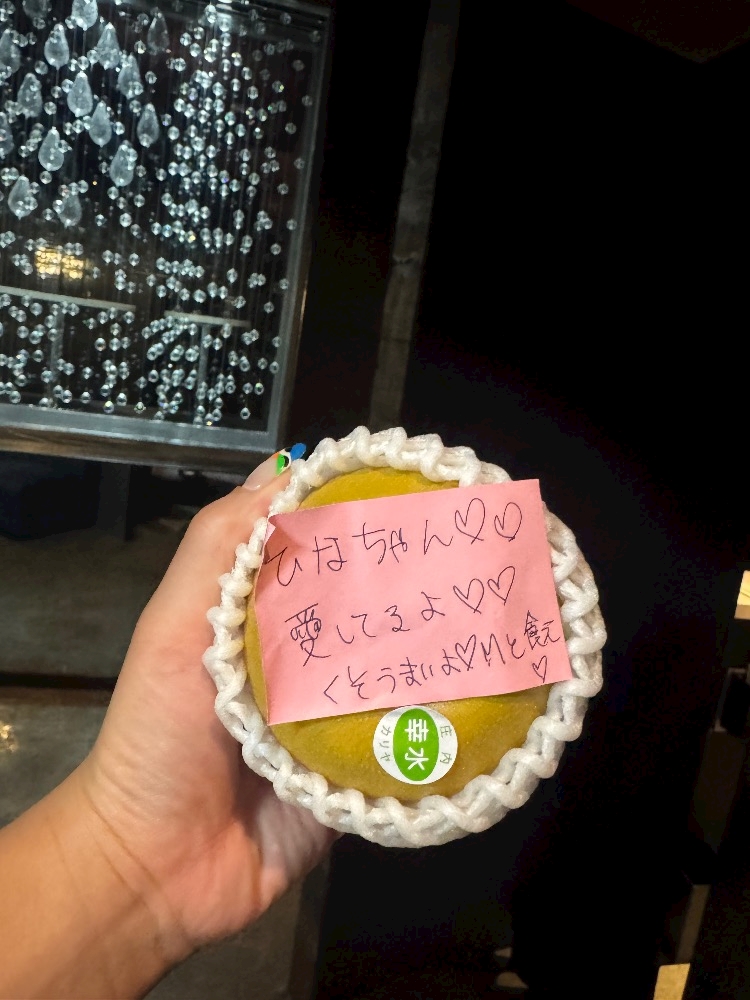 ひなちゃん♡♡
愛してるよ♡♡
くそうまいよ♡
庄内
幸水
カリヤ